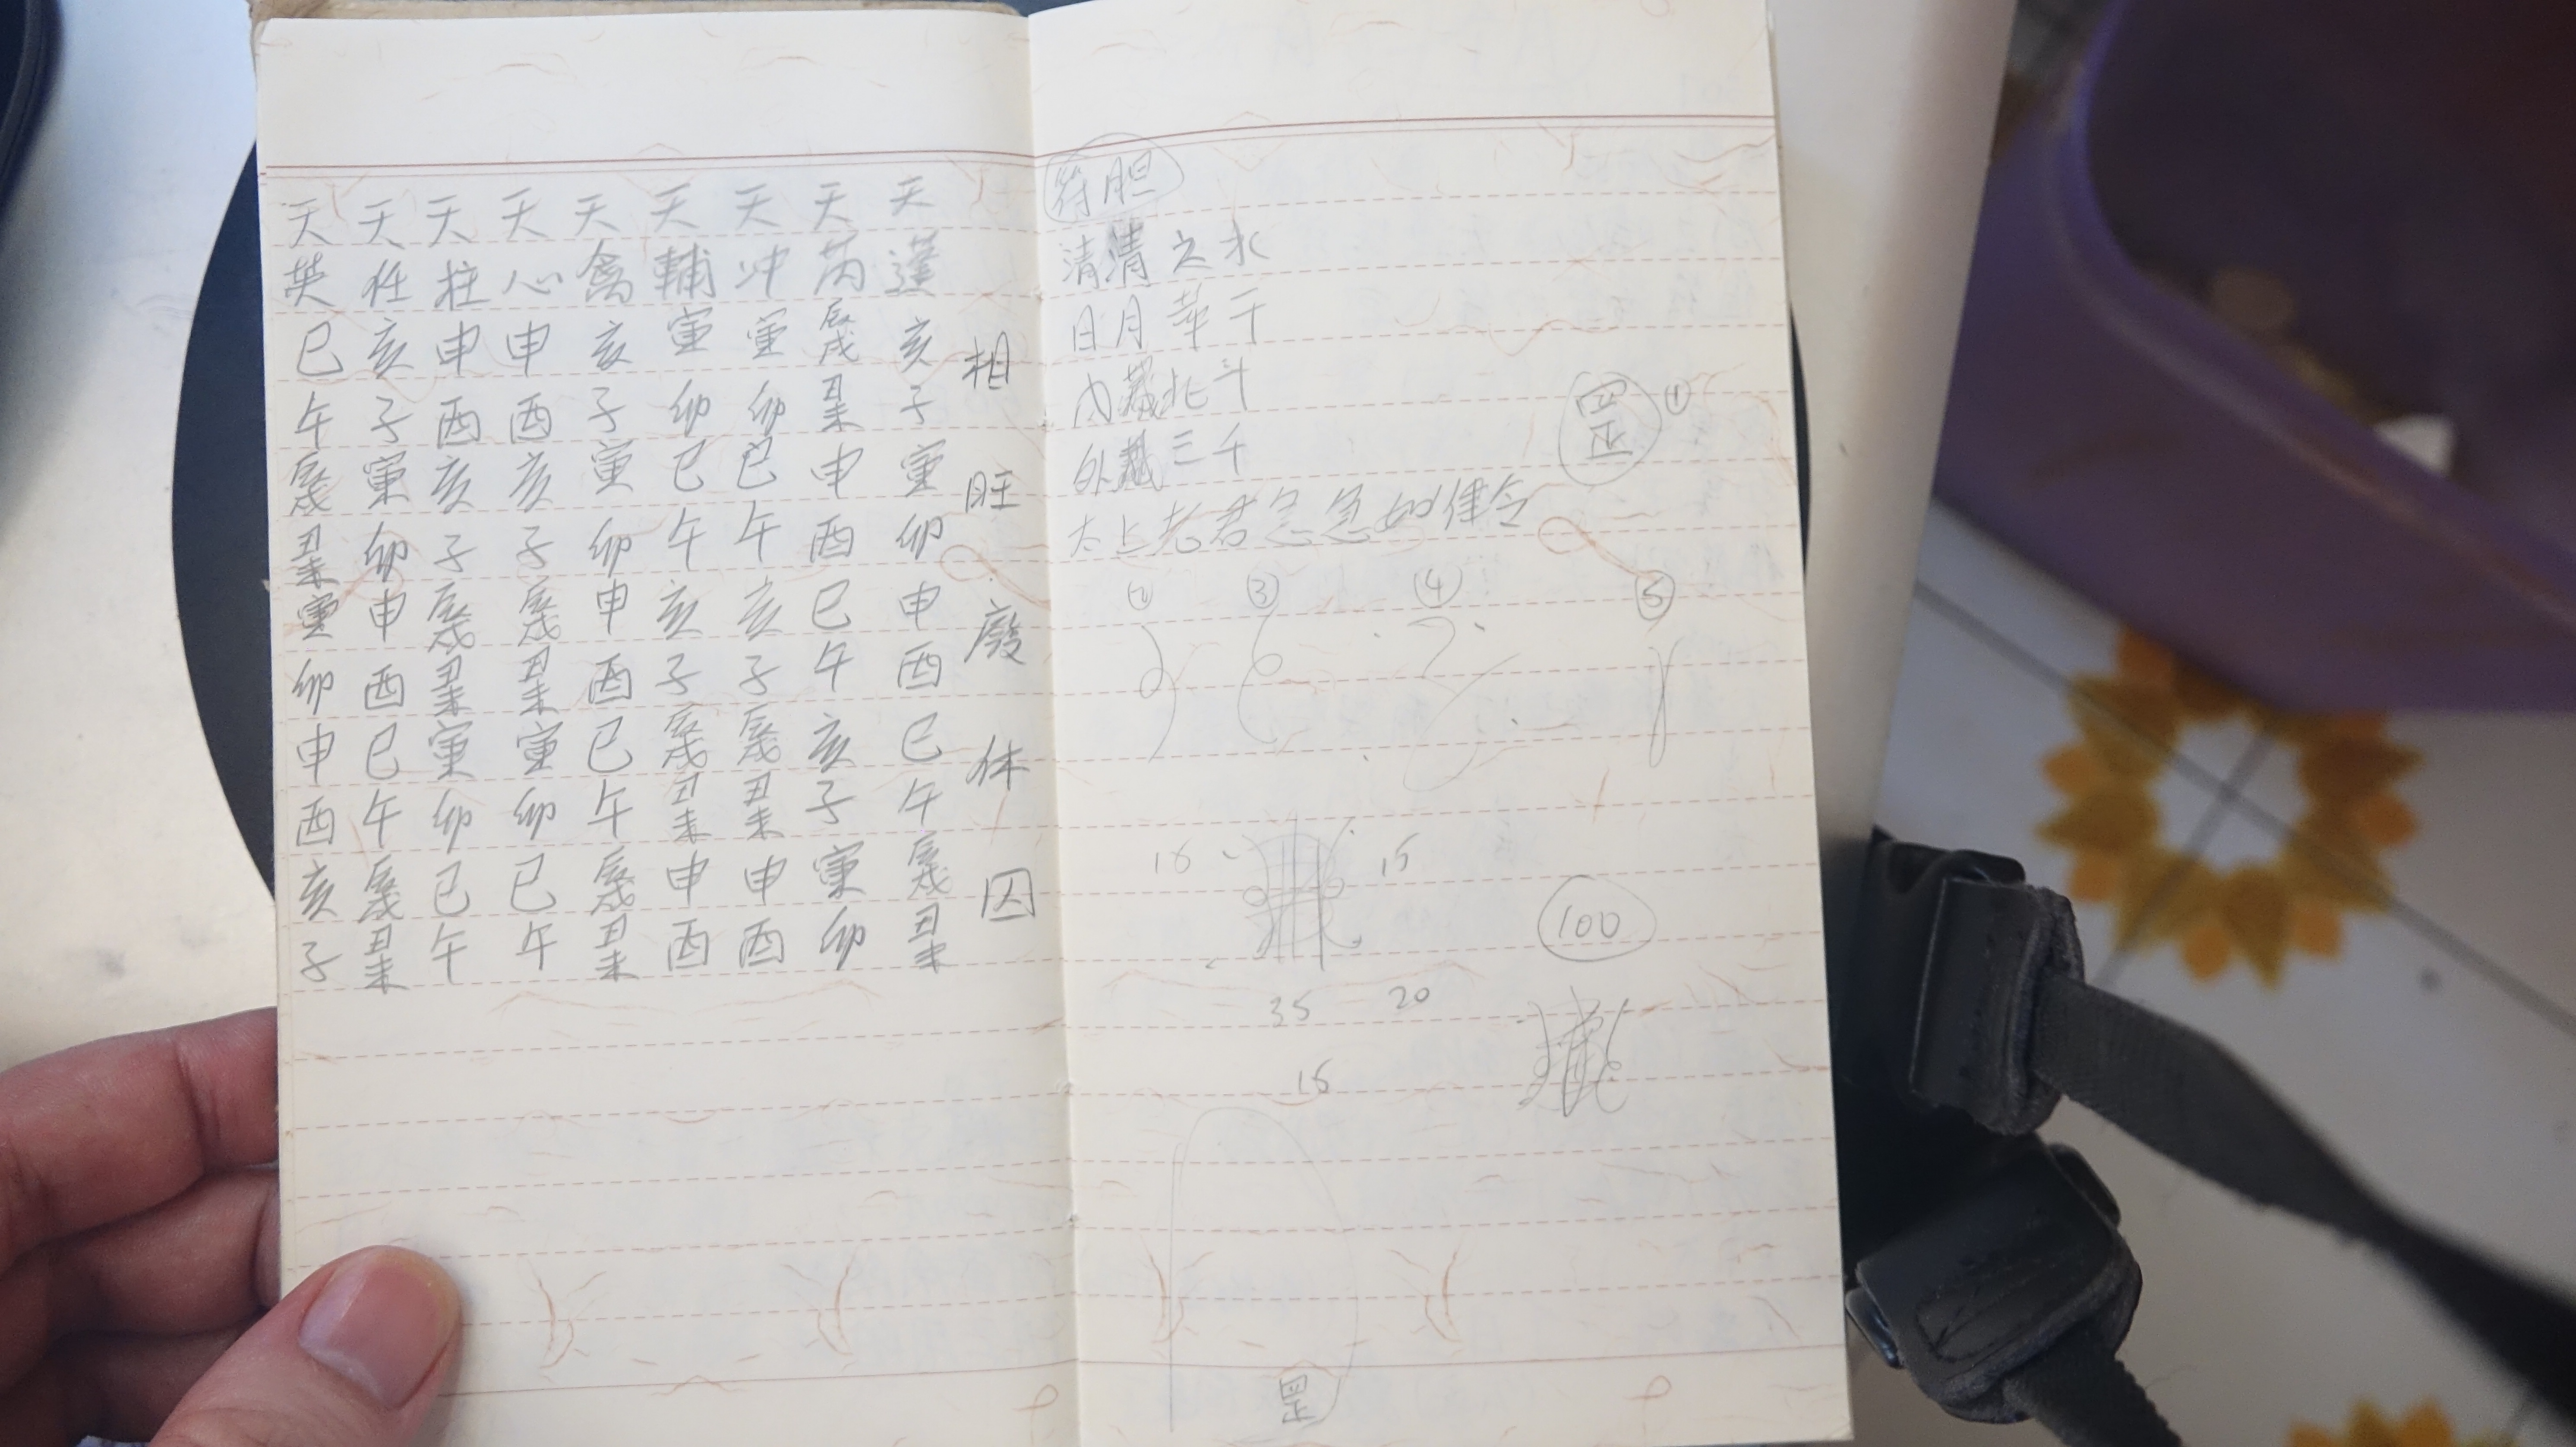 相旺廢休囚
天蓬亥子寅卯申酉巳午辰戌丑未
天芮辰戌丑未申酉巳午亥子寅卯
天冲寅卯巳午亥子辰戌丑未申酉
天輔寅卯巳午亥子辰戌丑未申酉
天禽亥子寅卯申酉巳午辰戌丑未
天心申酉亥子辰戌丑未寅卯巳午
天柱申酉亥子辰戌丑未寅卯巳午
天任亥子寅卯申酉巳午辰戌丑未
天英巳午辰戌丑未寅卯申酉亥子
符胆
清清之水
日月華干
内藏北斗
外藏三千
太上老君急急如律令
罡 ①
② ③ ④ ⑤
15 15
100
35 20
15
罡